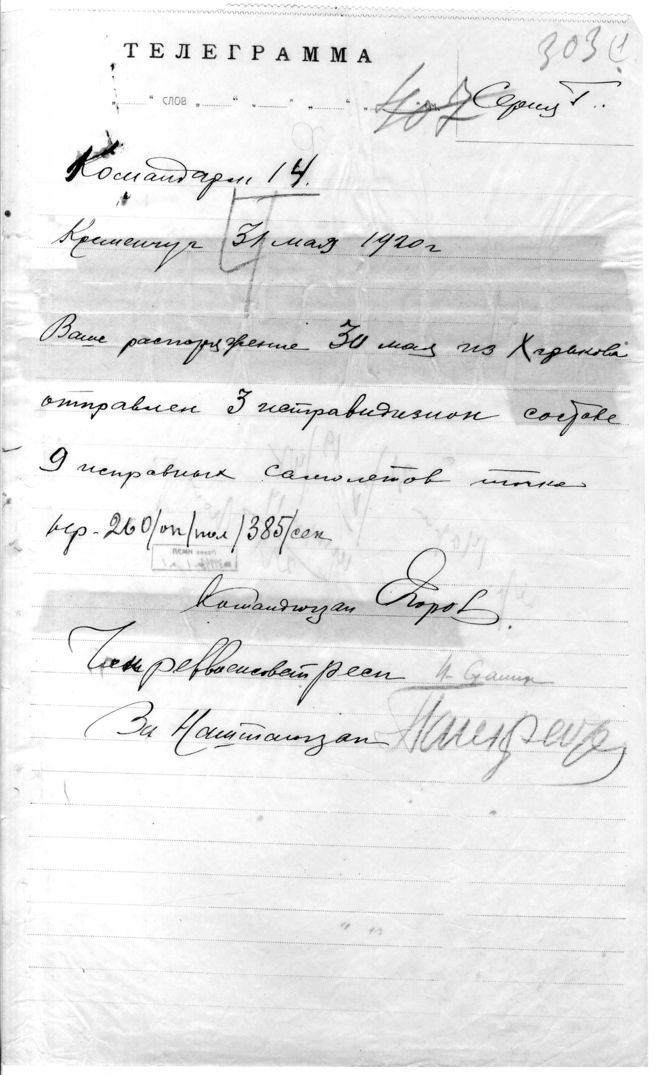 303
ТЕЛЕГРАММА
„ “ СЛОВ „ “ „ “ „ “ „
407 Серия Г.
Командарм 14.
Кременчуг 31 мая 1920 г
Ваше распоряжение 30 мая из Харькова
отправлен 3 истравидизион составе
9 исправных самолетов точка
нр-260/оп/пол/385/сек
Командюгзап Егоров.
Член реввоенсовет респ И. Сталин
За Наштаюгзап